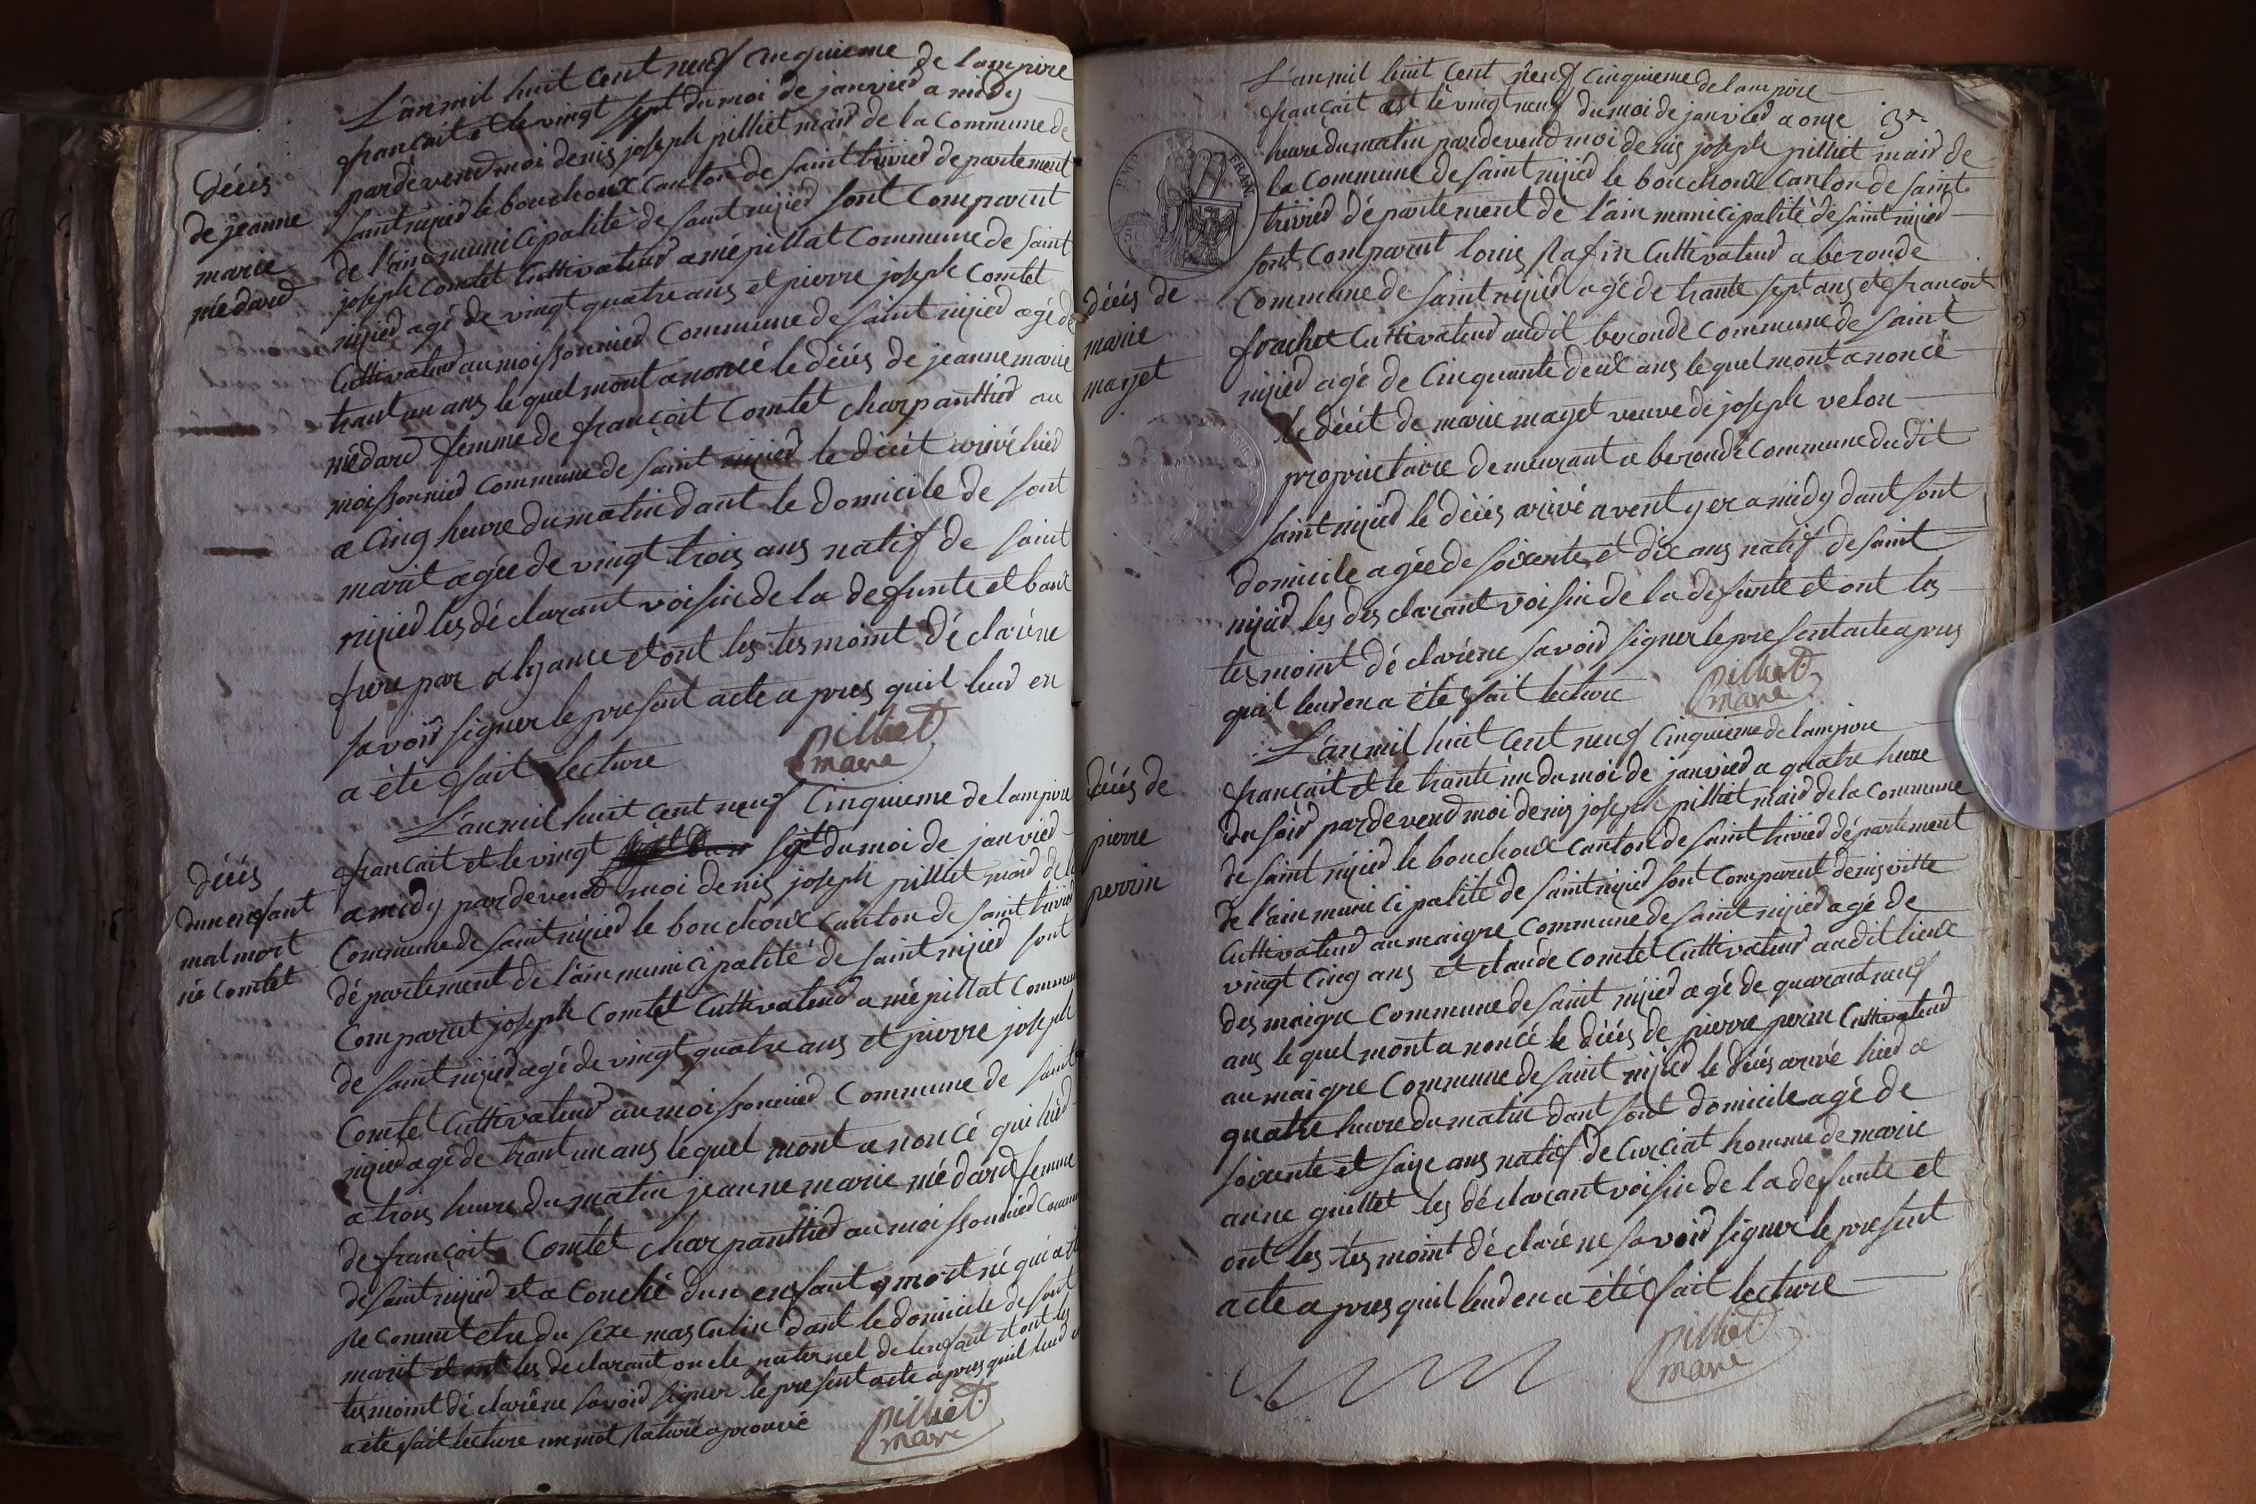 L'an mil huit cent neuf cinquieme de lampire
francait et le vingt sept du moi de janvied a midy
pardevend moi denis joseph pilliet maid de la Commune de
saint nijied le bouchoux Canton de saint trivied departement
de l'ain municipalité de saint nijied sont Comparut
joseph Comtet Cuttivateud a mépillat Commune de saint
nijied agé de vingt quatre ans et pierre joseph Comtet
Cuttivateud au moissonnied Commune de saint nijied agé de
trant un ans le quel mont anoncé le décés de jeanne marie
médard femme de françoit Comtet charpanttied au
moissonnied Commune de saint nijied le décit arivé hied
a Cinq heure du matin dant le domicile de sont
marit agée de vingt trois ans natif de saint
nijied les déclarant voisin de la defunte et baux
frere par alyance et ont les tesmoint déclaréne
savoid signer le present acte apres quil leud en
a été fait lecture
pilliet
maire
décés
de jeanne
marie
médard
L'an mil huit cent neuf Cinquieme de lampire
francait et le vingt sept du moi de janvied
a midy pardevend moi denis joseph pilliet maid de la
Commune de saint nijied le bouchoux Canton de saint trivied
département de l'ain municipalité de saint nijied sont
Comparut joseph Comtet Cuttivateud a mépillat Commune
de saint nijied agé de vingt quatre ans et pierre joseph
Comtet Cuttivateud au moissonnied Commune de saint
nijied agé de trant un ans le quel mont anoncé qui hied
a trois heure du matin jeanne marie médard femme
de françoit Comtet charpanttied au moissonnied Commune
de saint nijied et a Couché dun enfant mort né qui a été
reconnut etre du sexe masculin dant le domicile de sont
marit les declarant oncle paternel de lenfant et ont les
tesmoint déclaréne savoid signer le present acte apres quil leud en
a été fait lecture un mot rature aprouvé
pilliet
maire
décés
dun enfant
mal mort
né Comtet
L'an mil huit cent neuf Cinquieme de lampire
françait et le vingt neuf du moi de janvied a onze
3e
heure du matin pardevend moi denis joseph pilliet maid de
la Commune de saint nijied le bouchoux Canton de saint
trivied département de l'ain municipalité de saint nijied
sont Comparut louis Rafin Cuttivateud a beronde
Commune de saint nijied agé de trante sept ans et françoit
frachet Cuttivateud audit beronde Commune de saint
nijied agé de Cinquante deux ans le quel mont anoncé
le décit de marie mayet veuve de joseph velon
proprietaire demeurant a beronde Commune dudit
saint nijied le décés arivé avent yer a midy dant sont
domicile agée de soixente et dix ans natif de saint
nijied les desclarant voisin de la defunte et ont les
tesmoint déclaréne savoid signer le present acte apres
quil leud en a été fait lecture
pilliet
maire
FRANC
décés de
marie
mayet
L'an mil huit cent neuf Cinquieme de lampire
françait et le trante un du moi de janvied a quatre heure
du soid pardevend moi denis joseph pilliet maid de la Commune
de saint nijied le bouchoux Canton de saint trivied département
de l'ain municipalité de saint nijied sont Comparut denis vitte
Cuttivateud au maigre Commune de saint nijied agé de
vingt Cinq ans et claude Comtet Cuttivateud audit lieux
des maigre Commune de saint nijied agé de quarant neuf
ans le quel mont anoncé le décés de pierre perin Cuttivateud
au maigre Commune de saint nijied le décés arivé hied a
quatre heure du matin dant sont domicile agé de
soixente et saize ans natif de Curciat homme de marie
anne guillet les déclarant voisin de la defunte et
ont les tesmoint déclaréne savoid signer le present
acte apres quil leud en a été fait lecture
pilliet
maire
décés de
pierre
perrin